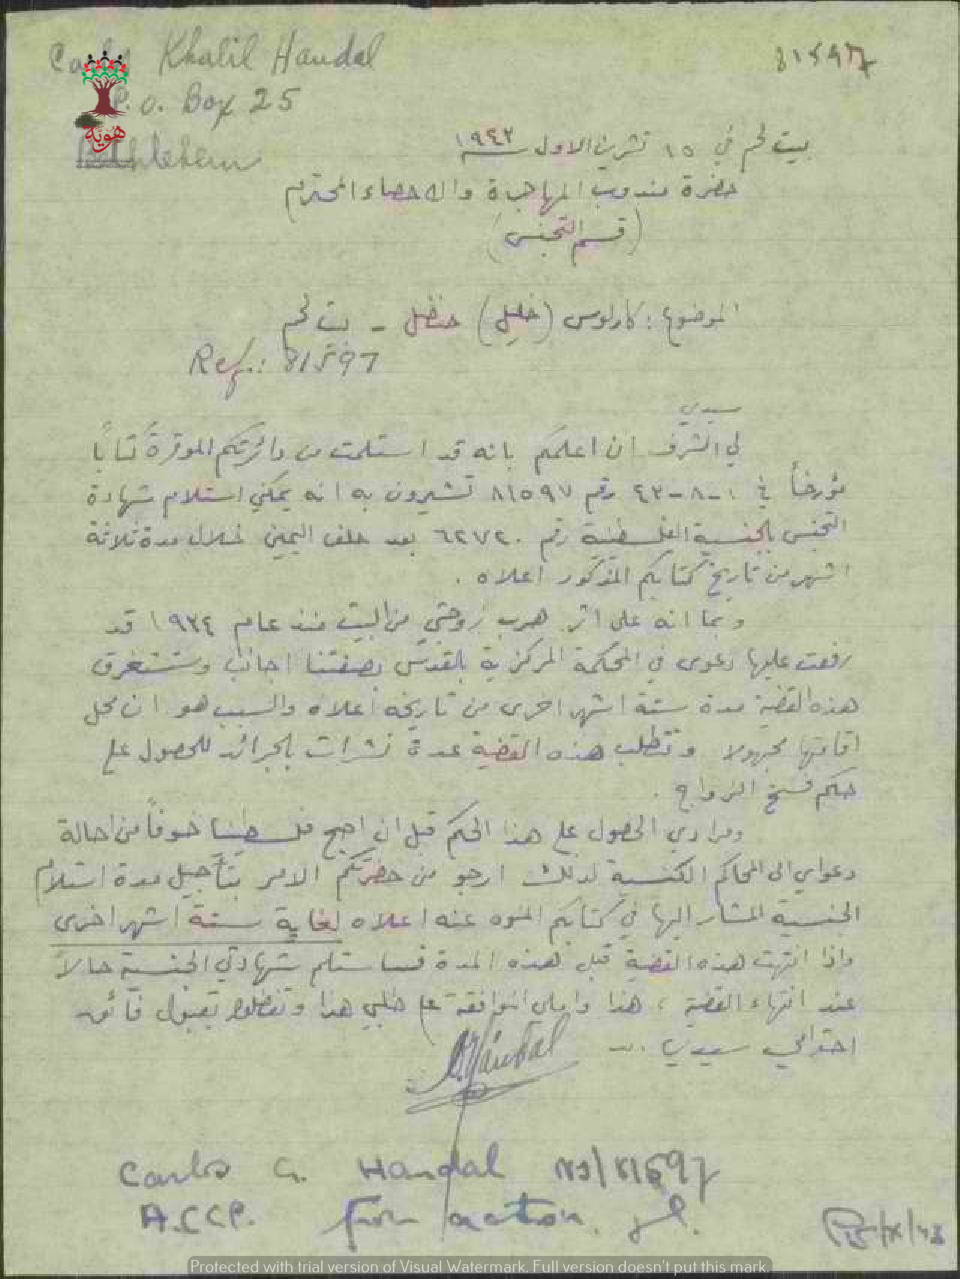 Carlos Khalil Handal
81597
P.O. Box 25
هوية
Bethlehem
بيت لحم في ١٥ تشرين الاول سنة ١٩٤٣
حضرة مندوب المهاجرة والاحصاء المحترم
(قسم التجنس)
الموضوع : كارلوس (خليل) حنظل - بيت لحم
Ref.: 81597
سيدي
لي الشرف ان اعلمكم بانه قد استلمت من دائرتكم الموقرة كتابًا
مؤرخاً في ١-٨-٤٣ رقم ٨١٥٩٧ تشيرون به انه يمكني استلام شهادة
التجنس بالجنسية الفلسطينية رقم ٦٢٧٢٠ بعد حلف اليمين خلال مدة ثلاثة
اشهر من تاريخ كتابكم المذكور اعلاه .
وبما انه على اثر هرب زوجتي من البيت منذ عام ١٩٣٤ قد
رفعت عليها دعوى في المحكمة المركزية بالقدس بصفتنا اجانب وستستغرق
هذه القضية مدة ستة اشهر اخرى من تاريخه اعلاه والسبب هو ان محل
اقامتها مجهولا وتتطلب هذه القضية عدة نشرات بالجرائد للحصول على
حكم فسخ الزواج .
ومرادي الحصول على هذا الحكم قبل ان اصبح فلسطينيا خوفاً من احالة
دعواي الى المحاكم الكنسية لذلك ارجو من حضرتكم الامر بتأجيل مدة استلام
الجنسية المشار اليها في كتابكم المنوه عنه اعلاه لغاية ستة اشهر اخرى
واذا انتهت هذه القضية قبل هذه المدة فسأستلم شهادتي الجنسية حالاً
عند انتهاء القضية ، هذا واملي الموافقة على طلبي هذا وتفضلوا بقبول فائق
احترامي سيدي ..
Handal
Carlos G. Handal NJ/81597
A.CCP. for action.
Protected with trial version of Visual Watermark. Full version doesn't put this mark.